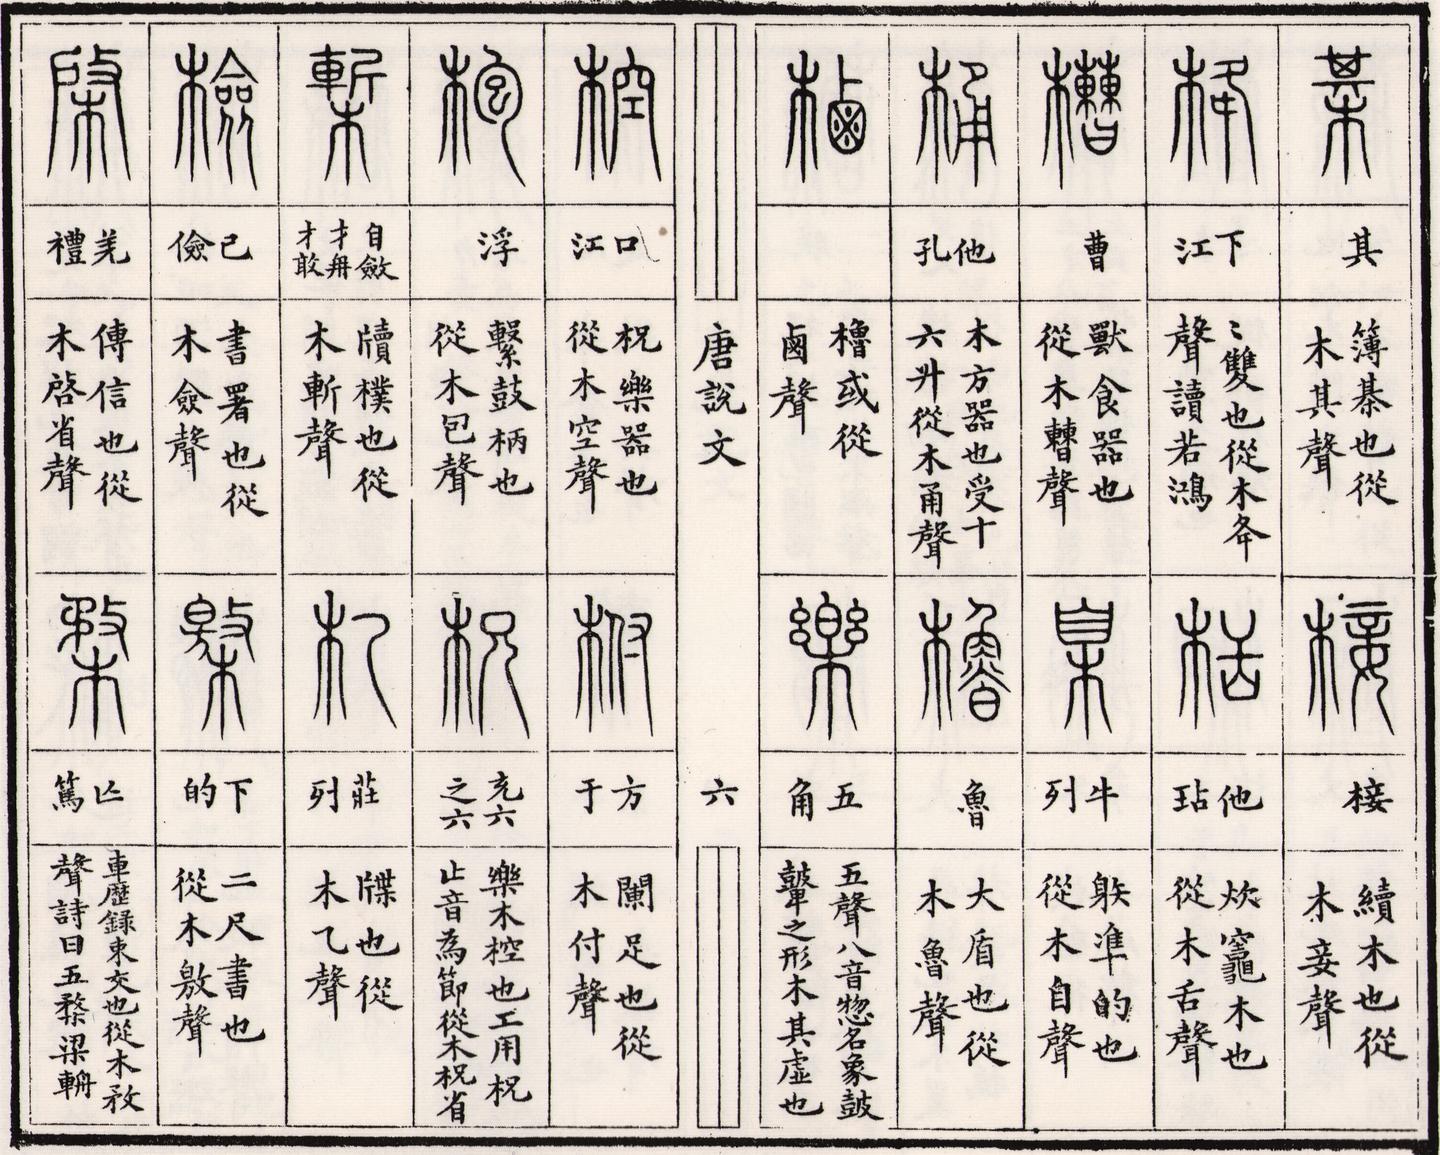 棊
其
簿棊也從
木其聲
椄
接
續木也從
木妾聲
栙
下江
〻雙也從木夅
聲讀若鴻
栝
他玷
炊竈木也
從木舌聲
槽
曹
獸食器也
從木㯥聲
臬
牛列
躲凖的也
從木自聲
桶
他孔
木方器也受十
六升從木甬聲
櫓
魯
大盾也從
木魯聲
樐
櫓或從
鹵聲
樂
五角
五聲八音惣名象鼓
鼙之形木其虛也
唐說文
六
椌
口江
柷樂器也
從木空聲
柎
方于
闌足也從
木付聲
枹
浮
繫鼓柄也
從木包聲
柷
充六
之六
樂木椌也工用柷
止音為節從木柷省
槧
自斂
才冉
才敢
牘樸也從
木斬聲
札
莊列
牒也從
木乙聲
檢
己儉
書署也從
木僉聲
檄
下的
二尺書也
從木敫聲
棨
羌禮
傳信也從
木啓省聲
楘
亾篤
車歷錄束交也從木敄
聲詩曰五楘梁輈